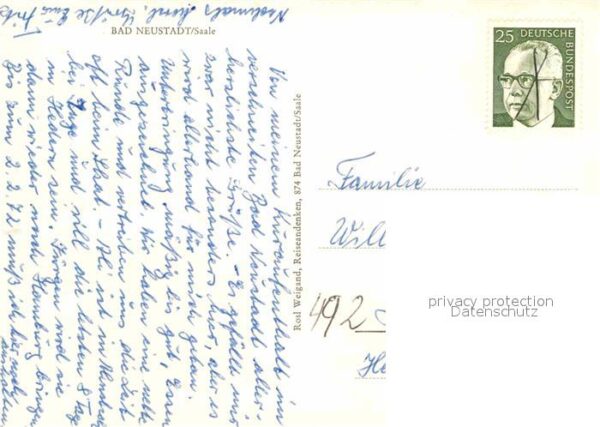 Nochmals herzl. Grüße Euer Fritz
BAD NEUSTADT/Saale
Von meinem Kuraufenthalt im
verschneiten Bad Neustadt aller-
herzlichste Grüße. - Es gefällt mir
zwar nicht besonders gut, aber es
wird allerhand für mich getan.
Unterbringung mäßig bis gut, Essen
ausgezeichnet. Wir haben eine nette
Runde und vertreiben uns die Zeit
oft beim Skat. - Ali ist in
bei Inge und will die letzten 8 Tage
in sein. Jürgen wird sie
dann wieder nach Hamburg bringen.
Bis zum 2.2.72 muß ich hier noch
aushalten.
Rosl Weigand, Reiseandenken, 874 Bad Neustadt/Saale
25 DEUTSCHE
BUNDESPOST
Familie
Will
492
He
privacy protection
Datenschutz